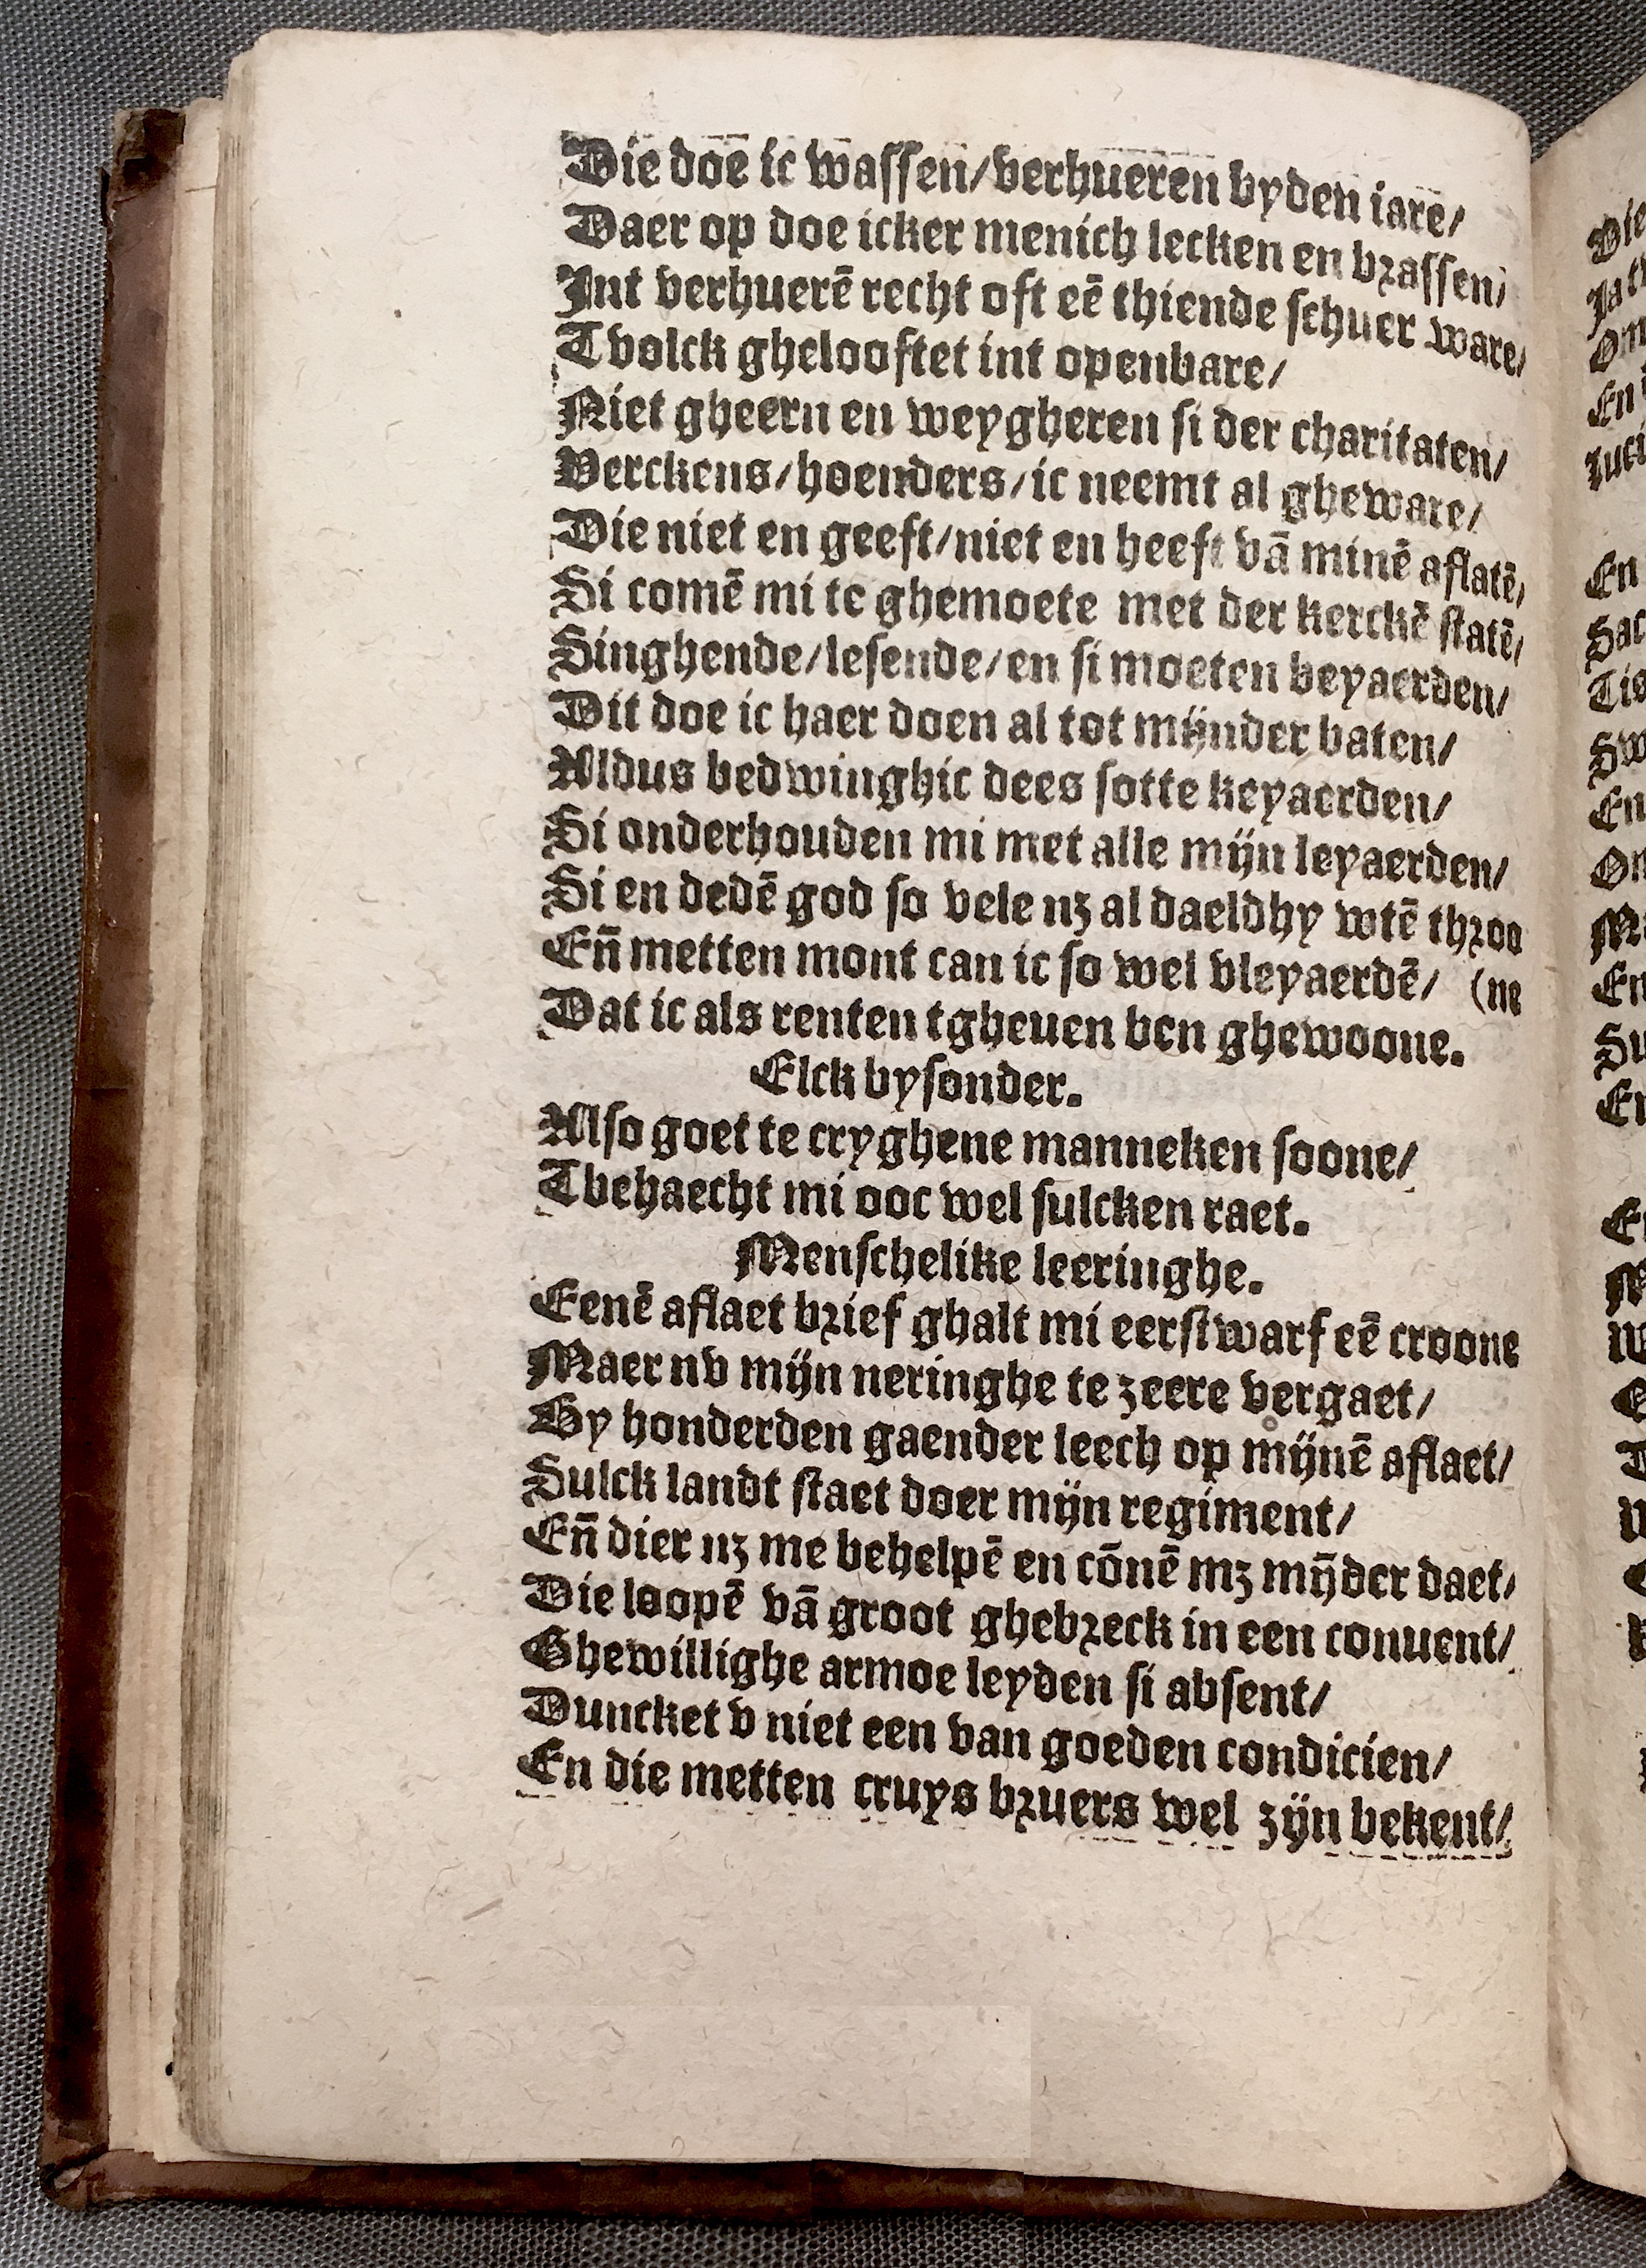 Die doē ic wassen/verhueren byden iarē/
Daer op doe icker menich lecken en brassen/
Int verhuerē recht oft eē thiende schuer ware/
Tvolck ghelooftet int openbare/
Niet gheern en weygheren si der charitaten/
Verckens/hoenders/ic neemt al gheware/
Die niet en geeft/niet en heeft vā minē aflatē/
Si comē mi te ghemoete met der kerckē statē/
Singhende/lesende/en si moeten beyaerden/
Dit doe ic haer doen al tot mijnder baten/
Aldus bedwinghic dees sotte keyaerden/
Si onderhouden mi met alle mijn leyaerden/
Si en dedē god so vele nz al daeldhy wtē throo
Eñ metten mont can ic so wel vleyaerdē/ (ne
Dat ic als renten tgheuen ben ghewoone.
Elck bysonder.
Also goet te cryghene manneken soone/
Tbehaecht mi ooc wel sulcken raet.
Menschelike leeringhe.
Eenē aflaet brief ghalt mi eerstwarf eē croone
Maer nv mijn neringhe te zeere vergaet/
By honderden gaender leech op mijnē aflaet/
Sulck landt staet doer mijn regiment/
Eñ dier nz me behelpē en cōnē mz mȳder daet/
Die loopē vā groot ghebreck in een conuent/
Ghewillighe armoe leyden si absent/
Duncket v niet een van goeden condicien/
En die metten cruys bruers wel zijn bekent/
Die
En
En
En